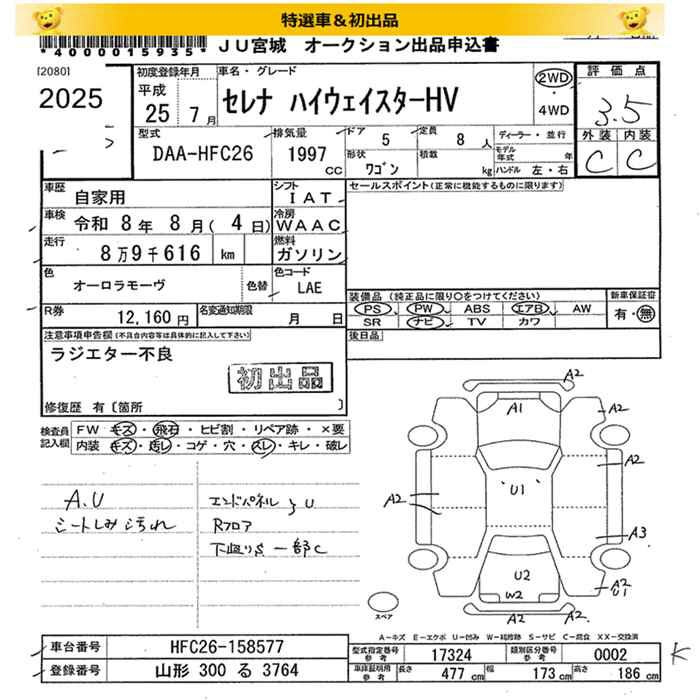 特選車＆初出品
*4000015935*
JU宮城 オークション出品申込書
[2080]
2025
初度登録年月
平成
25年 7月
車名・グレード
セレナ ハイウェイスターHV
2WD
・
4WD
評価点
3.5
外装 内装
C C
型式
DAA-HFC26
排気量
1997 cc
ドア 5
定員 8人
形状 ワゴン
積載 kg
ディーラー・並行
モデル年式 年
ハンドル 左・右
車歴 自家用
シフト IAT
車検 令和 8年 8月( 4日)
冷房 WAAC
走行 8万9千616 km
燃料 ガソリン
色 オーロラモーヴ
色替
色コード LAE
R券 12,160円
名変通知期限 月 日
セールスポイント(正常に機能するものに限ります)
装備品 (純正品に限り○をつけてください)
PS PW ABS エアB AW
SR ナビ TV カワ
新車保証書
有・無
後日品
注意事項申告欄(不具合内容等は具体的に記入して下さい)
ラジエター不良
初出品
修復歴 有〔箇所 〕
検査員記入欄
FW キズ・飛石・ヒビ割・リペア跡・×要
内装 キズ・汚レ・コゲ・穴・スレ・キレ・破レ
A.U
シートしみ汚れ
エンドパネル U
Rフロア
下廻りS 一部C
A2
A1
A2
A2
A2
U1
A3
U2
W2
A2
U1
A2 A2
スペア
A－キズ E－エクボ U－凹み W－補修跡 S－サビ C－腐食 XX－交換済
車台番号 HFC26-158577
登録番号 山形 300 る 3764
型式指定番号 参考 17324
類別区分番号 参考 0002
車検証明用 参考 長さ 477cm 幅 173cm 高さ 186cm
K